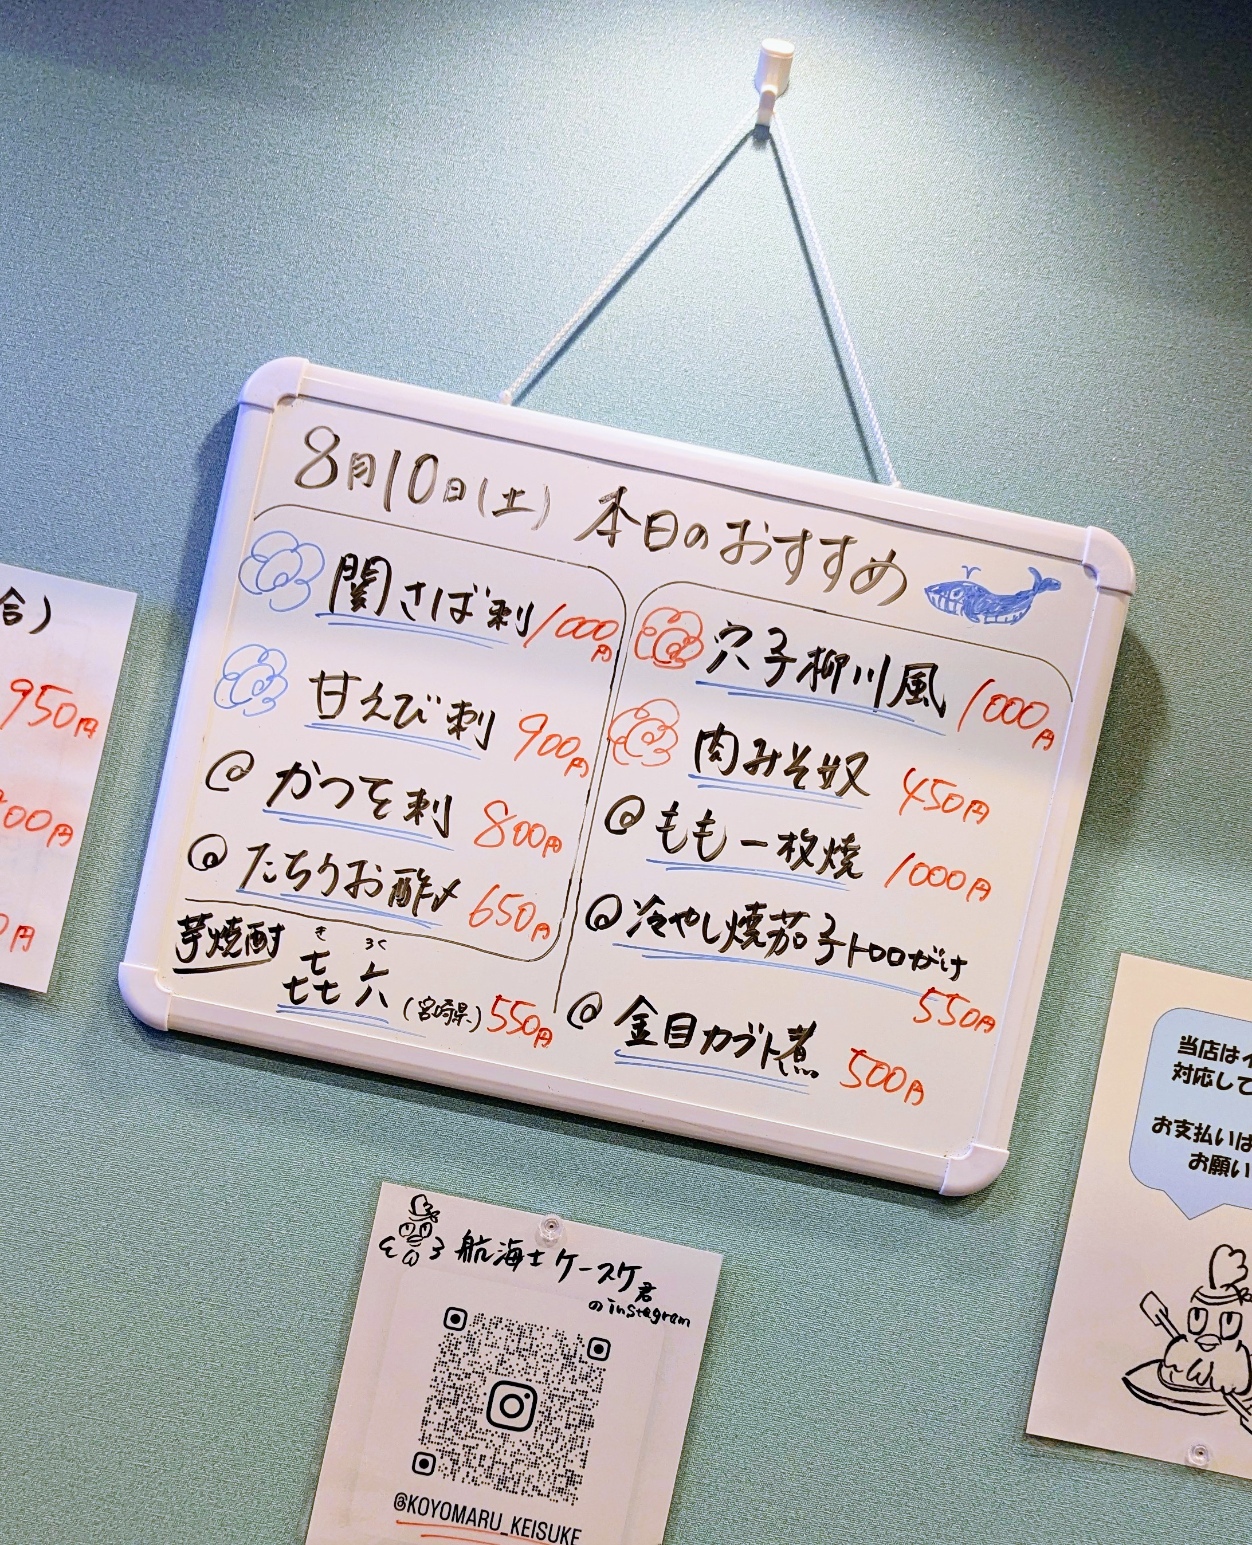 8月10日(土) 本日のおすすめ
関さば刺 1000円
甘えび刺 900円
かつを刺 800円
たちうお酢〆 650円
芋焼酎
き ろく
㐂六 (宮崎県) 550円
穴子柳川風 1000円
肉みそ奴 450円
もも一枚焼 1000円
冷やし焼茄子トロロがけ
550円
金目カブト煮 500円
合)
950円
00円
0円
航海士ケースケ君
のinstagram
@KOYOMARU_KEISUKE
当店はイ
対応して
お支払いは
お願い